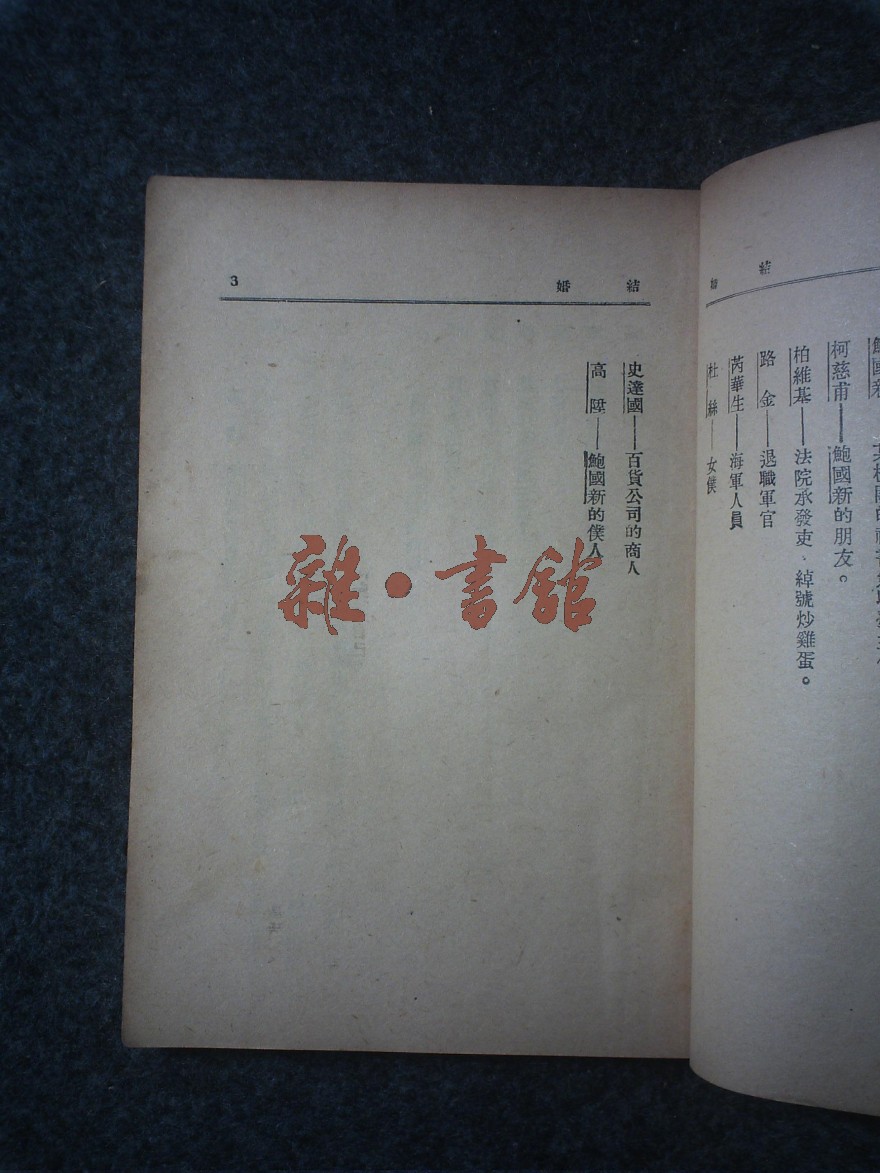 結婚
鮑國新
柯慈甫——鮑國新的朋友。
柏維基——法院承發吏、綽號炒雞蛋。
路金——退職軍官
芮華生——海軍人員
杜絲——女僕
結婚 3
史達國——百貨公司的商人
高陞——鮑國新的僕人
雜·書館